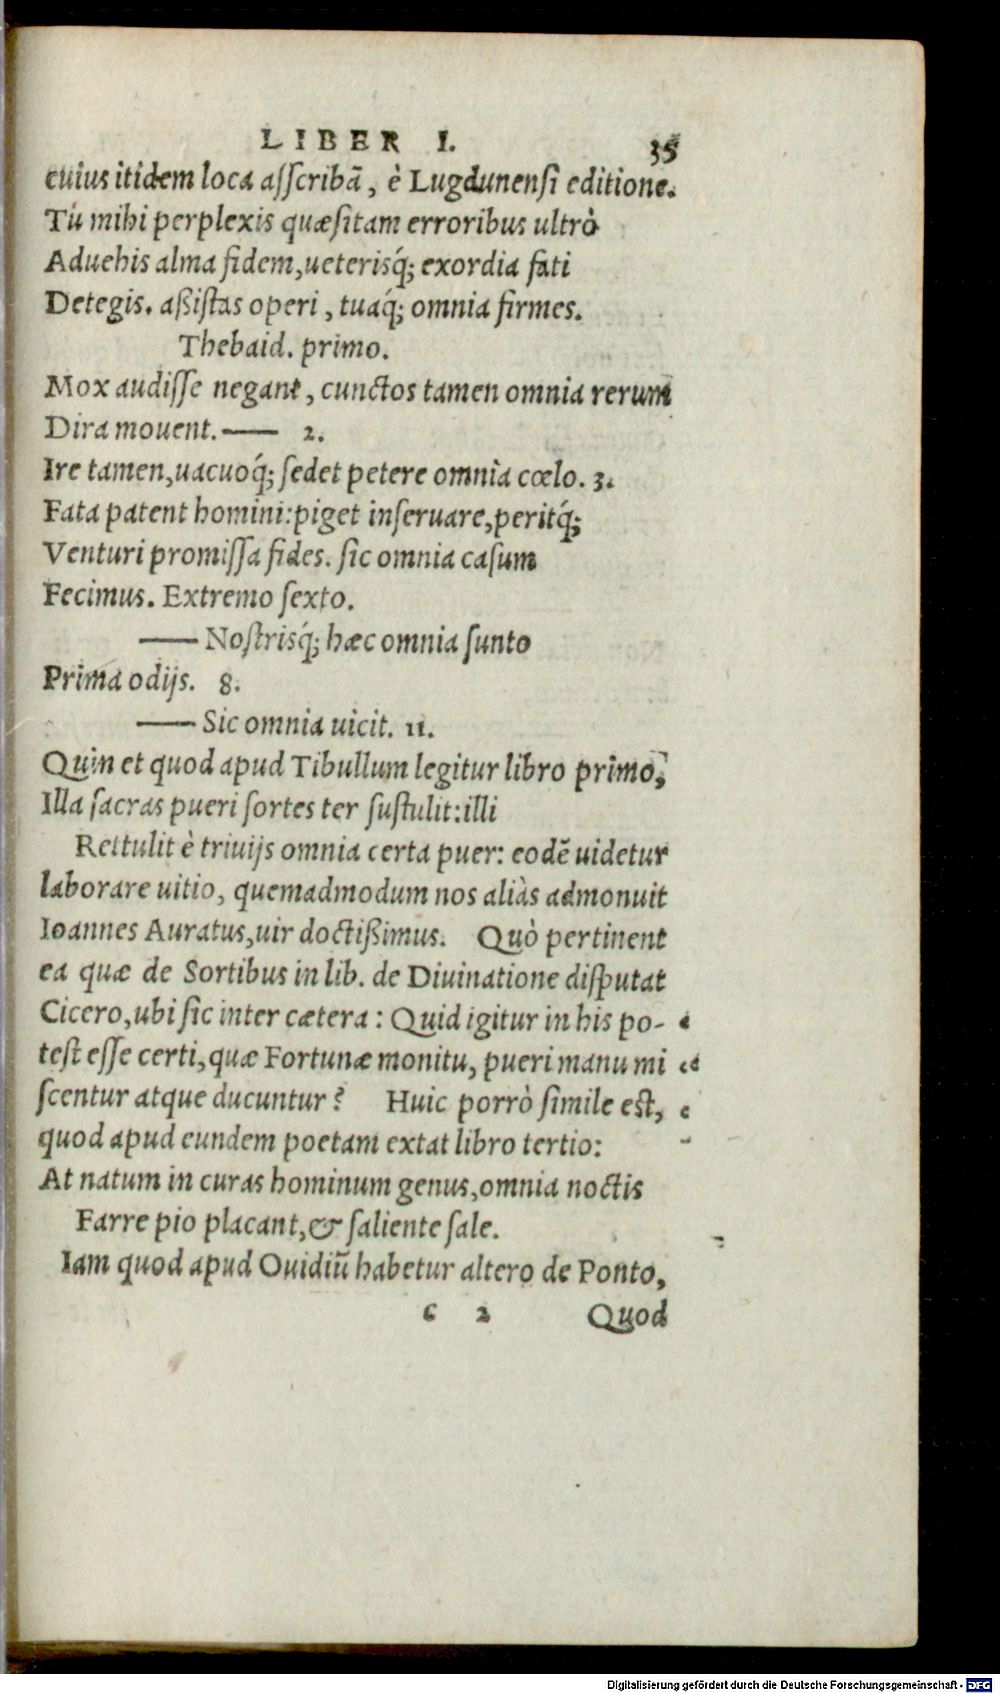 LIBER I. 35
cuius itidem loca asſcribā, è Lugdunenſi editione.
Tú mihi perplexis quæſitam erroribus ultrò
Aduehis alma fidem, ueterisq́; exordia fati
Detegis. aßiſtas operi, tuaq́; omnia firmes.
Thebaid. primo.
Mox audiſſe negant, cunctos tamen omnia rerum
Dira mouent.—— 2.
Ire tamen, uacuoq́; ſedet petere omnia cœlo. 3.
Fata patent homini: piget inſeruare, peritq́;
Venturi promiſſa fides. ſic omnia caſum
Fecimus. Extremo ſexto.
—— Noſtrisq́; hæc omnia ſunto
Prima odijs. 8.
—— Sic omnia uicit. 11.
Quin et quod apud Tibullum legitur libro primo,
Illa ſacras pueri ſortes ter ſuſtulit: illi
Rettulit è triuijs omnia certa puer: eodē uidetur
laborare uitio, quemadmodum nos aliàs admonuit
Ioannes Auratus, uir doctißimus. Quò pertinent
ea quæ de Sortibus in lib. de Diuinatione diſputat
Cicero, ubi ſic inter cætera: Quid igitur in his po-
teſt eſſe certi, quæ Fortunæ monitu, pueri manu mi
ſcentur atque ducuntur? Huic porrò ſimile eſt,
quod apud eundem poetam extat libro tertio:
At natum in curas hominum genus, omnia noctis
Farre pio placant, & ſaliente ſale.
Iam quod apud Ouidiū habetur altero de Ponto,
c 2 Quod
Digitalisierung gefördert durch die Deutsche Forschungsgemeinschaft - DFG